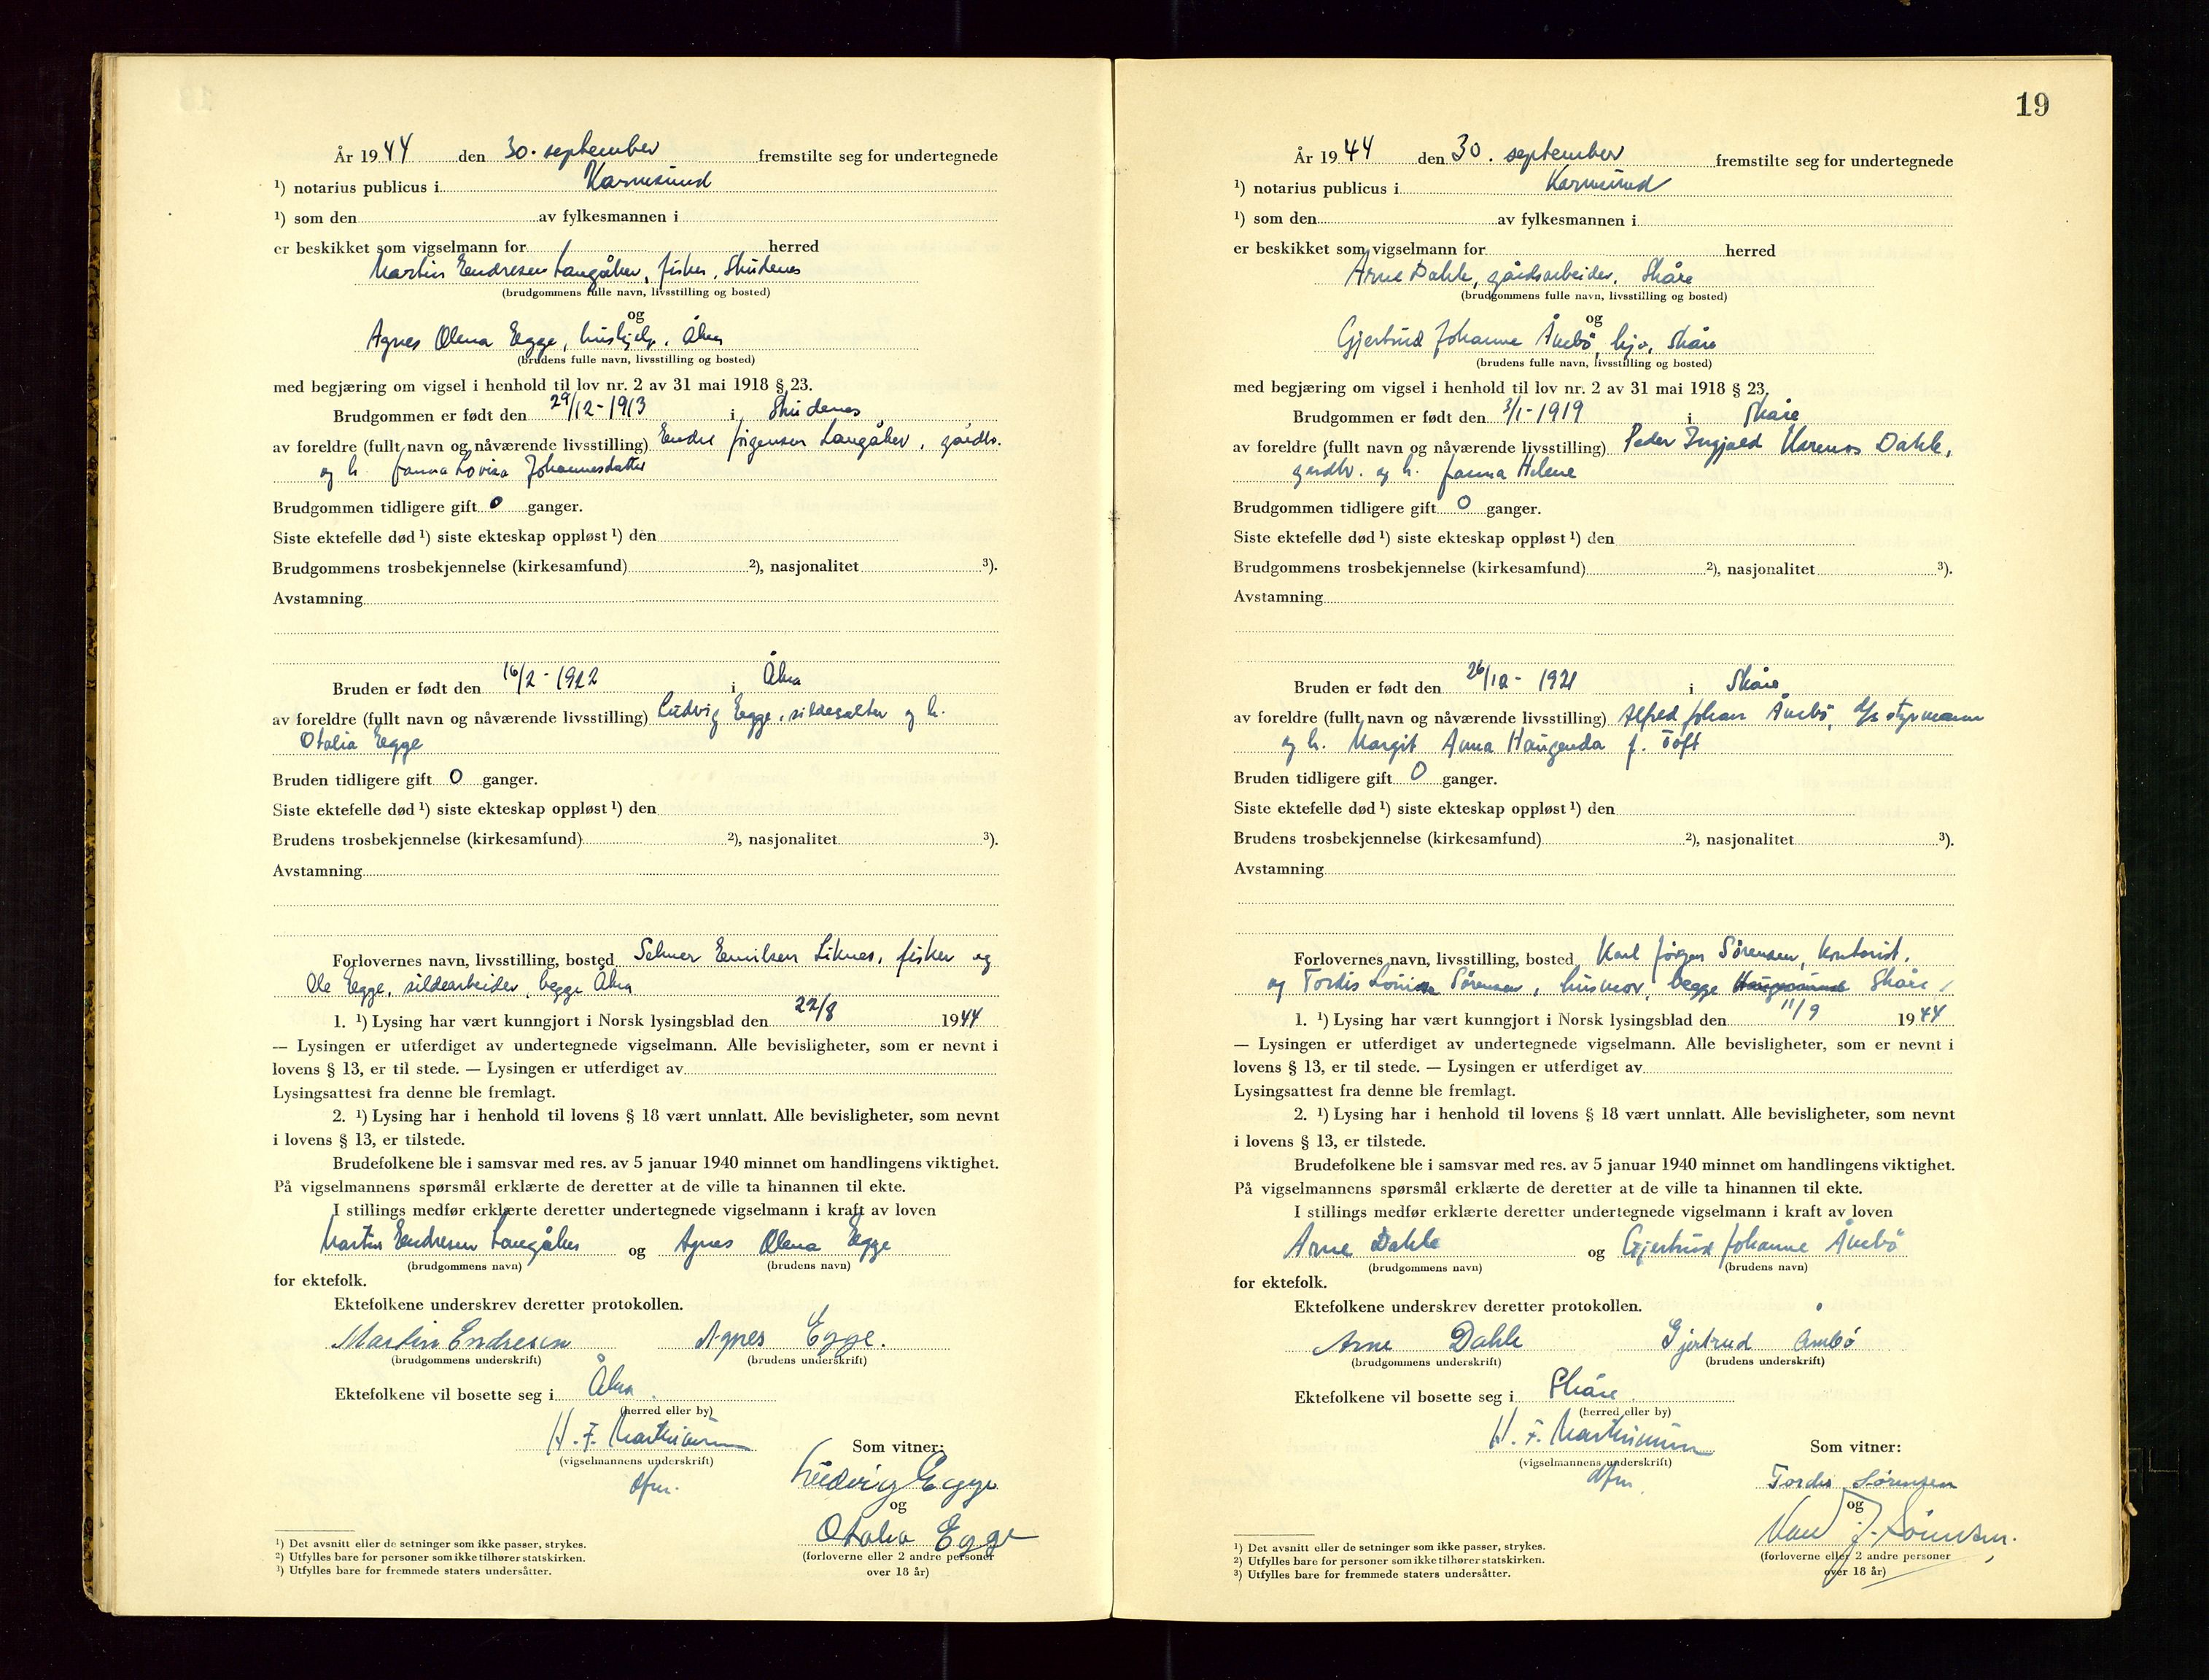 År 1944 den 30. september fremstilte seg for undertegnede
¹) notarius publicus i Karmsund
¹) som den av fylkesmannen i
er beskikket som vigselmann for herred
Martin Endresen Langåker, fisker, Skudenes
(brudgommens fulle navn, livsstilling og bosted)
og
Agnes Olena Egge, hushjelp, Åkra
(brudens fulle navn, livsstilling og bosted)
med begjæring om vigsel i henhold til lov nr. 2 av 31 mai 1918 § 23.
Brudgommen er født den 29/12-1913 i Skudenes
av foreldre (fullt navn og nåværende livsstilling) Endre Jørgensen Langåker, gårdbr.
og h. Janna Lovisa Johannesdatter
Brudgommen tidligere gift 0 ganger.
Siste ektefelle død ¹) siste ekteskap oppløst ¹) den
Brudgommens trosbekjennelse (kirkesamfund) ²), nasjonalitet ³).
Avstamning
Bruden er født den 16/2-1922 i Åkra
av foreldre (fullt navn og nåværende livsstilling) Ludvig Egge, sildesalter og h.
Otalia Egge
Bruden tidligere gift 0 ganger.
Siste ektefelle død ¹) siste ekteskap oppløst ¹) den
Brudens trosbekjennelse (kirkesamfund) ²), nasjonalitet ³).
Avstamning
Forlovernes navn, livsstilling, bosted Selmer Emilsen Liknes, fisker og
Ole Egge, sildearbeider, begge Åkra
1. ¹) Lysing har vært kunngjort i Norsk lysingsblad den 22/8 1944
— Lysingen er utferdiget av undertegnede vigselmann. Alle bevisligheter, som er nevnt i
lovens § 13, er til stede. — Lysingen er utferdiget av
Lysingsattest fra denne ble fremlagt.
2. ¹) Lysing har i henhold til lovens § 18 vært unnlatt. Alle bevisligheter, som nevnt
i lovens § 13, er tilstede.
Brudefolkene ble i samsvar med res. av 5 januar 1940 minnet om handlingens viktighet.
På vigselmannens spørsmål erklærte de deretter at de ville ta hinannen til ekte.
I stillings medfør erklærte deretter undertegnede vigselmann i kraft av loven
Martin Endresen Langåker og Agnes Olena Egge
(brudgommens navn) (brudens navn)
for ektefolk.
Ektefolkene underskrev deretter protokollen.
Martin Endresen Agnes Egge.
(brudgommens underskrift) (brudens underskrift)
Ektefolkene vil bosette seg i Åkra.
(herred eller by)
H. F. Martinsen
(vigselmannens underskrift)
dfm.
Som vitner:
Ludvig Egge
og
Otalia Egge
(forloverne eller 2 andre personer
over 18 år)
¹) Det avsnitt eller de setninger som ikke passer, strykes.
²) Utfylles bare for personer som ikke tilhører statskirken.
³) Utfylles bare for fremmede staters undersåtter.
19
År 1944 den 30. september fremstilte seg for undertegnede
¹) notarius publicus i Karmsund
¹) som den av fylkesmannen i
er beskikket som vigselmann for herred
Arne Dahle, gårdsarbeider, Skåre
(brudgommens fulle navn, livsstilling og bosted)
og
Gjertrud Johanne Åmbö, hjv, Skåre
(brudens fulle navn, livsstilling og bosted)
med begjæring om vigsel i henhold til lov nr. 2 av 31 mai 1918 § 23.
Brudgommen er født den 3/1-1919 i Skåre
av foreldre (fullt navn og nåværende livsstilling) Peder Ingjald Dahle,
gårdbr. og h. Janna Helene
Brudgommen tidligere gift 0 ganger.
Siste ektefelle død ¹) siste ekteskap oppløst ¹) den
Brudgommens trosbekjennelse (kirkesamfund) ²), nasjonalitet ³).
Avstamning
Bruden er født den 26/12-1921 i Skåre
av foreldre (fullt navn og nåværende livsstilling) Alfred Johan Åmbö, d/s styrmann
og h. Margit Anna f. Toft
Bruden tidligere gift 0 ganger.
Siste ektefelle død ¹) siste ekteskap oppløst ¹) den
Brudens trosbekjennelse (kirkesamfund) ²), nasjonalitet ³).
Avstamning
Forlovernes navn, livsstilling, bosted Karl Jörgen Sörensen, kontorist,
og Tordis Louise Sörensen, husmor, begge Skåre
1. ¹) Lysing har vært kunngjort i Norsk lysingsblad den 11/9 1944
— Lysingen er utferdiget av undertegnede vigselmann. Alle bevisligheter, som er nevnt i
lovens § 13, er til stede. — Lysingen er utferdiget av
Lysingsattest fra denne ble fremlagt.
2. ¹) Lysing har i henhold til lovens § 18 vært unnlatt. Alle bevisligheter, som nevnt
i lovens § 13, er tilstede.
Brudefolkene ble i samsvar med res. av 5 januar 1940 minnet om handlingens viktighet.
På vigselmannens spørsmål erklærte de deretter at de ville ta hinannen til ekte.
I stillings medfør erklærte deretter undertegnede vigselmann i kraft av loven
Arne Dahle og Gjertrud Johanne Åmbö
(brudgommens navn) (brudens navn)
for ektefolk.
Ektefolkene underskrev deretter protokollen.
Arne Dahle Gjertrud Åmbö
(brudgommens underskrift) (brudens underskrift)
Ektefolkene vil bosette seg i Skåre.
(herred eller by)
H. F. Martinsen
(vigselmannens underskrift)
dfm.
Som vitner:
Tordis Sörensen
og
Karl J. Sörensen.
(forloverne eller 2 andre personer
over 18 år)
¹) Det avsnitt eller de setninger som ikke passer, strykes.
²) Utfylles bare for personer som ikke tilhører statskirken.
³) Utfylles bare for fremmede staters undersåtter.